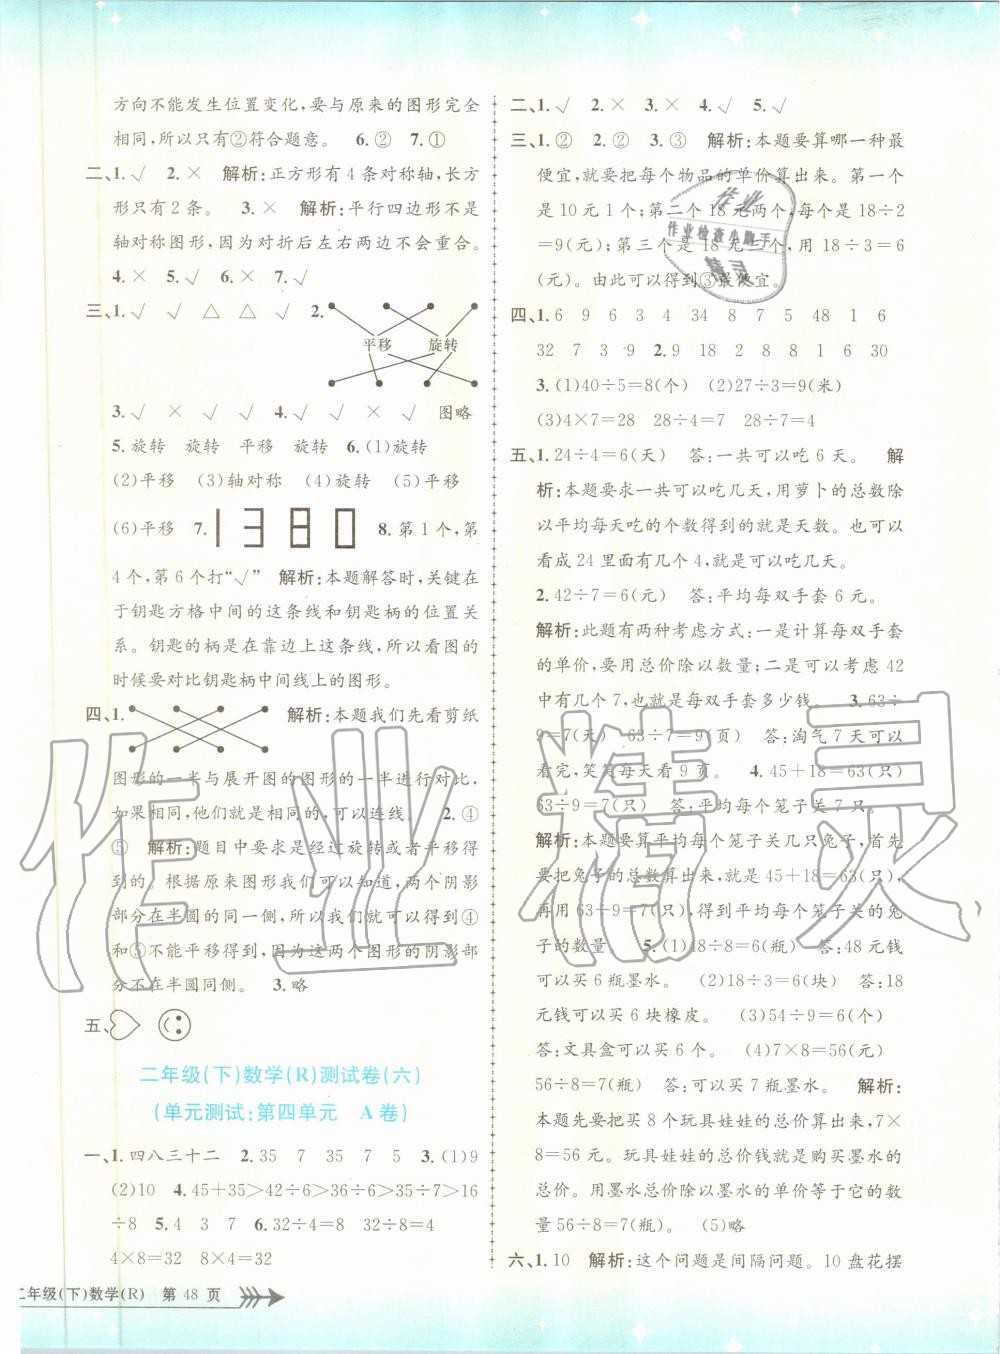 方向不能发生位置变化,要与原来的图形完全
相同,所以只有②符合题意。 6.② 7.①
二、1.√ 2.× 解析:正方形有4条对称轴,长方
形只有2条。 3.× 解析:平行四边形不是
轴对称图形,因为对折后左右两边不会重合。
4.× 5.√ 6.× 7.√
三、1.√ √ △ △ √ 2.
平移 旋转
3.√ × √ √ 4.√ √ × √ 图略
5.旋转 旋转 平移 旋转 6.(1)旋转
(2)平移 (3)轴对称 (4)旋转 (5)平移
(6)平移 7. 1 3 8 0 8.第1个,第
4个,第6个打“√” 解析:本题解答时,关键在
于钥匙方格中间的这条线和钥匙柄的位置关
系。钥匙的柄是在靠边上这条线,所以看图的
时候要对比钥匙柄中间线上的图形。
四、1. 解析:本题我们先看剪纸
图形的一半与展开图的图形的一半进行对比,
如果相同,他们就是连成一对进行连线。 2.④
⑤ 解析:题目中要求是经过旋转或者平移得
到的。根据原来图形我们可以知道,两个阴影
部分在半圆的同一侧,所以我们就可以得到④
和⑤不能平移得到,因为这两个图形的阴影部
分不在半圆同侧。 3.略
五、
二年级(下)数学(R)测试卷(六)
(单元测试:第四单元 A卷)
一、1.四八三十二 2.35 7 35 7 5 3.(1)9
(2)10 4.45+35>42÷6>31-24>7>16
÷8 5.4 3 7 9 6.32÷4=8 32÷8=4
4×8=32 8×4=32
二年级(下)数学(R) 第48页
二、1.√ 2.× 3.× 4.√ 5.√
三、1.② 2.② 3.③ 解析:本题要算哪一种最
便宜,就要把每个物品的单价算出来。第一个
是10元1个;第二个18元两个,每个是18÷2
=9(元);第三个是18元三个,用18÷3=6
(元)。由此可以得到③最便宜。
四、1.6 9 6 3 4 34 8 7 5 48 1 6
32 7 3 9 2.9 18 2 8 8 1 6 30
3.(1)40÷5=8(个) (2)27÷3=9(米)
(3)4×7=28 28÷4=7 28÷7=4
五、1.24÷4=6(天) 答:一共可以吃6天。 解
析:本题要求一共可以吃几天,用萝卜的总数除
以平均每天吃的个数得到的就是天数。也可以
看成24里面有几个4,就可以吃几天。
2.42÷7=6(元) 答:平均每双手套6元。
解析:此题有两种考虑方式:一是计算每双手套
的单价,要用总价除以数量;二是可以考虑42
中有几个7,就可以是每双手套多少钱。 3.63÷
9=7(天) 63÷7=9(页) 答:淘气7天可以
看完,笑笑每天看9页。 4.45+18=63(只)
63÷9=7(只) 答:平均每个笼子关7只。
解析:本题要算平均每个笼子关几只兔子,首先
要把兔子的总数算出来,就是45+18=63(只),
再用63÷9=7(只),得到平均每个笼子关的兔
子的数量。 5.(1)48÷8=6(瓶) 答:48元钱
可以买6瓶墨水。 (2)18÷3=6(块) 答:18
元钱可以买6块橡皮。 (3)54÷9=6(个)
答:文具盒可以买6个。 (4)7×8=56(元)
56÷8=7(瓶) 答:可以买7瓶墨水。 解析:
本题首先要把买8个玩具娃娃的总价算出来,7×
8=56元。玩具娃娃的总价钱就是购买墨水的
总价。用墨水总价除以墨水的单价等于它的数
量56÷8=7(瓶)。 (5)略
六、1.10 解析:这个问题是间隔问题。10盘花摆
作业
作业检查小助手
精灵
作业精灵